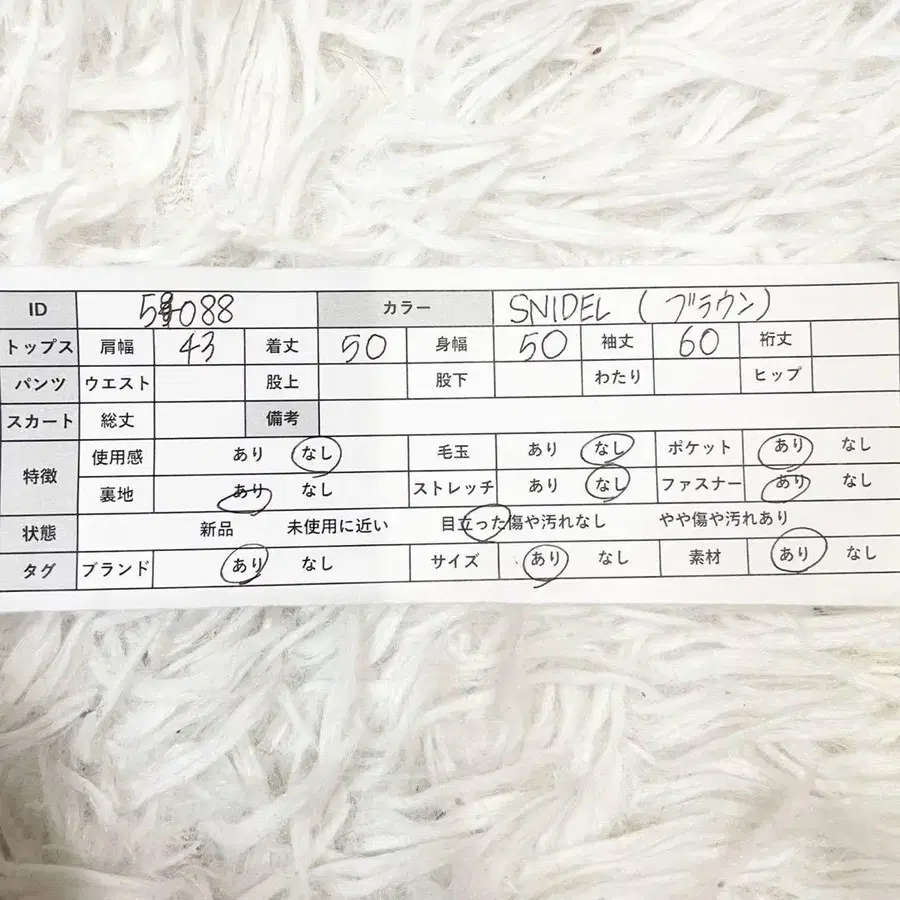 ID 088 カラー SNIDEL (ブラウン)
トップス 肩幅 43 着丈 50 身幅 50 袖丈 60 裄丈
パンツ ウエスト 股上 股下 わたり ヒップ
スカート 総丈 備考
特徴 使用感 あり なし 毛玉 あり なし ポケット あり なし
裏地 あり なし ストレッチ あり なし ファスナー あり なし
状態 新品 未使用に近い 目立った傷や汚れなし やや傷や汚れあり
タグ ブランド あり なし サイズ あり なし 素材 あり なし